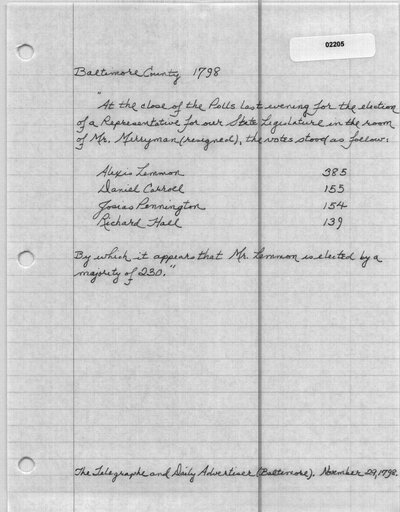 02205
Baltimore County 1798
"At the close of the Polls last evening for the election
of a Representative for our State Legislature in the room
of Mr. Merryman (resigned), the votes stood as follow:
Alexis Lemmon 385
Daniel Carroll 155
Josias Pennington 154
Richard Hall 139
By which it appears that Mr. Lemmon is elected by a
majority of 230."
The Telegraphe and Daily Advertiser (Baltimore). November 29, 1798.